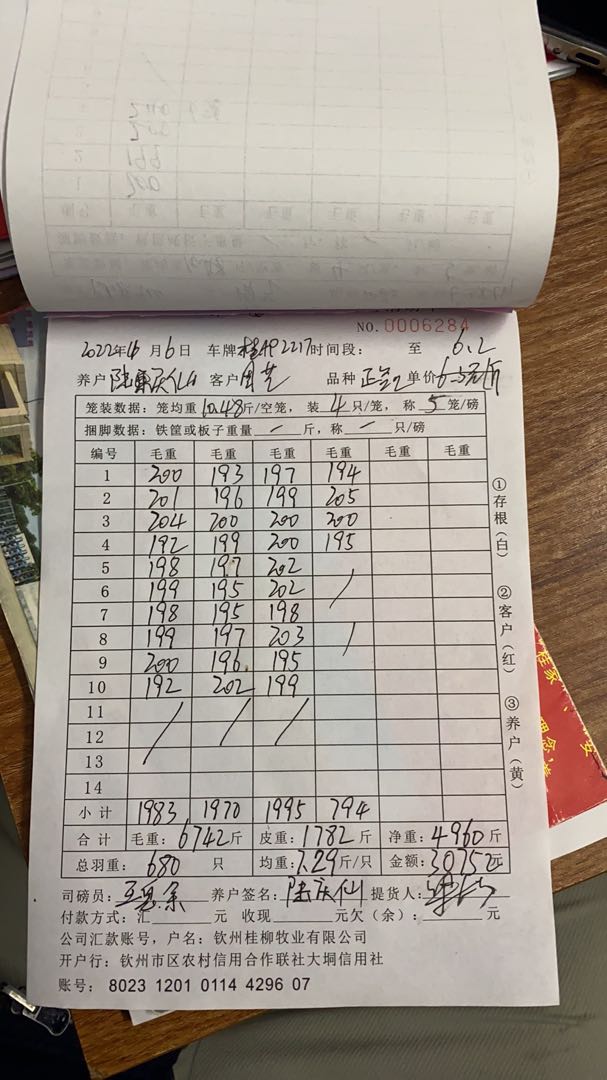 NO.0006284
2022年6月6日 车牌桂AP2217时间段： 至 6.2
养户陆庆仙 客户 品种 单价
笼装数据：笼均重10.48斤/空笼，装4只/笼，称5笼/磅
捆脚数据：铁筐或板子重量/斤，称/只/磅
编号 毛重 毛重 毛重 毛重 毛重 毛重
1 200 193 197 194
2 201 196 199 205
3 204 200 200 200
4 192 199 200 195
5 198 197 202
6 199 195 202 /
7 198 195 198
8 199 197 203 /
9 200 196 195
10 192 202 199
11
12 / / /
13
14
小计 1983 1970 1995 794
合计 毛重：6742斤 皮重：1782斤 净重：4960斤
总羽重：680只 均重：7.29斤/只 金额：30752元
司磅员： 养户签名：陆庆仙 提货人：
付款方式：汇 元 收现 元欠（余）： 元
公司汇款账号，户名：钦州桂柳牧业有限公司
开户行：钦州市区农村信用合作联社大垌信用社
账号：8023 1201 0114 4296 07
①存根（白）
②客户（红）
③养户（黄）